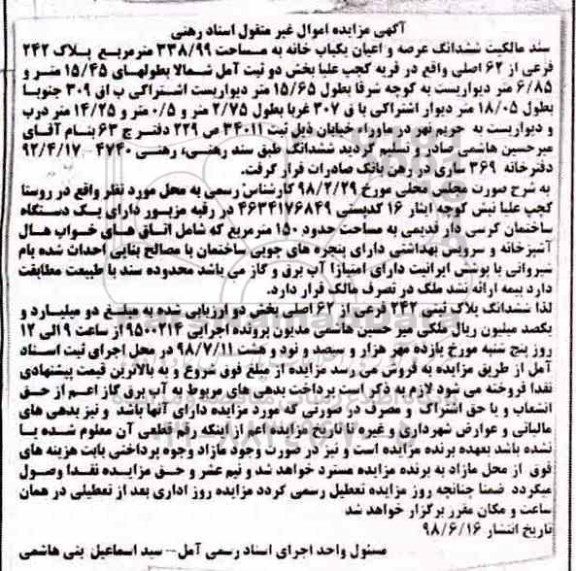 آگهی مزایده اموال غیر منقول اسناد رهنی
سند مالکیت ششدانگ عرصه و اعیان یکباب خانه به مساحت ۳۳۸/۹۹ مترمربع پلاک ۲۴۲
فرعی از ۶۲ اصلی واقع در قریه کچب علیا بخش دو ثبت آمل شمالا بطولهای ۱۵/۴۵ متر و
۶/۸۵ متر دیواریست به کوچه شرقا بطول ۱۵/۶۵ متر دیواریست اشتراکی ب اق ۳۰۹ جنوبا
بطول ۱۸/۰۵ متر دیوار اشتراکی با ق ۳۰۷ غربا بطول ۲/۷۵ متر و ۰/۵ متر و ۱۴/۲۵ متر درب
و دیواریست به حریم نهر در ماوراء خیابان ذیل ثبت ۳۴۰۱۱ ص ۲۲۹ دفتر ج ۶۳ بنام آقای
میرحسین هاشمی صادر و تسلیم گردید ششدانگ طبق سند رهنی، رهنی ۴۷۴۰ - ۹۲/۴/۱۷
دفترخانه ۳۶۹ ساری در رهن بانک صادرات قرار گرفت.
به شرح صورت مجلس محلی مورخ ۹۸/۲/۲۹ کارشناس رسمی به محل مورد نظر واقع در روستا
کچپ علیا نبش کوچه ایثار ۱۶ کدپستی ۴۶۳۴۱۷۶۸۴۹ در رقبه مزبور دارای یک دستگاه
ساختمان کرسی دار قدیمی به مساحت حدود ۱۵۰ مترمربع که شامل اتاق های خواب هال
آشپزخانه و سرویس بهداشتی دارای پنجره های چوبی ساختمان با مصالح بنایی احداث شده بام
شیروانی با پوشش ایرانیت دارای امتیازا آب برق و گاز می باشد محدوده سند با طبیعت مطابقت
دارد بیمه ارائه نشد ملک در تصرف مالک قرار دارد.
لذا ششدانگ پلاک ثبتی ۲۴۲ فرعی از ۶۲ اصلی بخش دو ارزیابی شده به مبلغ دو میلیارد و
یکصد میلیون ریال ملکی میر حسین هاشمی مدیون پرونده اجرایی ۹۵۰۰۲۱۴ از ساعت ۹ الی ۱۲
روز پنج شنبه مورخ یازده مهر هزار و سیصد و نود و هشت ۹۸/۷/۱۱ در محل اجرای ثبت اسناد
آمل از طریق مزایده به فروش می رسد مزایده از مبلغ فوق شروع و به بالاترین قیمت پیشنهادی
نقدا فروخته می شود لازم به ذکر است پرداخت بدهی های مربوط به آب برق گاز اعم از حق
انشعاب و یا حق اشتراک و مصرف در صورتی که مورد مزایده دارای آنها باشد و نیز بدهی های
مالیاتی و عوارض شهرداری و غیره تا تاریخ مزایده اعم از اینکه رقم قطعی آن معلوم شده یا
نشده باشد بعهده برنده مزایده است و نیز در صورت وجود مازاد وجوه پرداختی بابت هزینه های
فوق از محل مازاد به برنده مزایده مسترد خواهد شد و نیم عشر و حق مزایده نقدا وصول
میگردد ضمنا چنانچه روز مزایده تعطیل رسمی گردد مزایده روز اداری بعد از تعطیلی در همان
ساعت و مکان مقرر برگزار خواهد شد
تاریخ انتشار ۹۸/۶/۱۶
مسئول واحد اجرای اسناد رسمی آمل -- سید اسماعیل بنی هاشمی